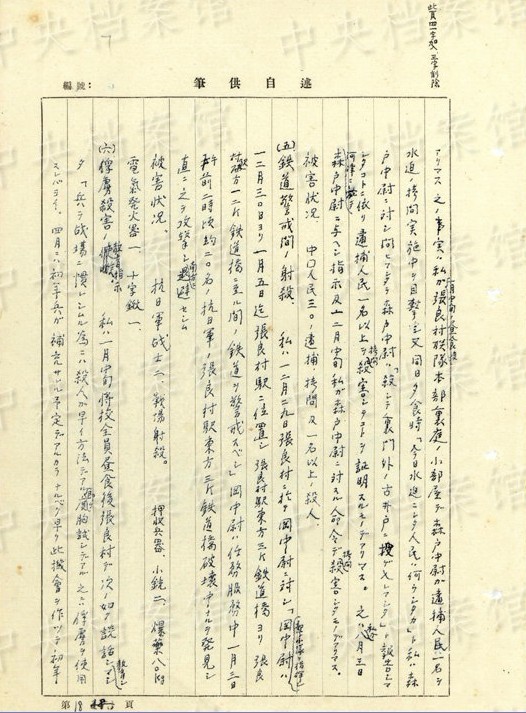 此頁四一字加、六字削除
筆供自述
編號：
アリマス 之ノ事実ハ 私ガ張良村聯隊本部裏庭ノ小部屋デ 森戸中尉ガ逮捕人民一名ヲ
水迫ノ拷問実施中ヲ目撃シ 又同日夕食時「今日水迫シタ人民ハ何ウシタカ」ト私ハ森
戸中尉ニ対シ問ヒタルニ 森戸中尉ハ「殺シテ裏門外ノ古井戸ニ投ゲ込レマシタ」ト報告シマ
シタコトニ依リ 逮捕人民一名以上ヲ拷問殺害シタコトヲ証明スルモノデアリマス。 之ハ八月三日
森戸中尉ニ与ヘシ指示及十二月中旬私ガ森戸中尉ニ対スル命令デ拷問殺害シタモノデアリマス。
被害状況 中国人民三〇ノ逮捕、拷問及一名以上ノ殺人。
(五)鉄道警戒間ノ射殺 私ハ一二月二九日張良村ニ於テ岡中尉ニ対シ「岡中尉ハ
一二月三〇日ヨリ一月五日迄張良村駅ニ位置シ 張良村駅東方三粁鉄道橋ヨリ 張良
村駅西方一二粁鉄道橋ニ至ル間ノ鉄道ヲ警戒スベシ」 岡中尉ハ任務服務中 一月三日
午前二時頃約二〇名ノ抗日軍ノ張良村駅東方三粁鉄道橋破壊中ナルヲ発見シ
直ニ之ヲ攻撃シ 退避セシム
被害状況、 抗日軍戦士二、戦場射殺。 押収兵器 小銃二、爆薬八〇瓩
電気発火器一、十字鍬一、
(六)俘虜殺害ノ教育指示 私ハ一月中旬将校全員昼食後張良村デ次ノ如ク談話シマシ
タ「兵ヲ戦場ニ慣レシムル為ニハ殺人ガ早イ方法デアル 即チ度胸試シデアル 之ニハ俘虜ヲ使用
スレバヨイ。四月ニハ初年兵ガ補充サレル予定デアルカラナルベク早ク此機会ヲ作ッテ初年
第18頁
中央档案馆